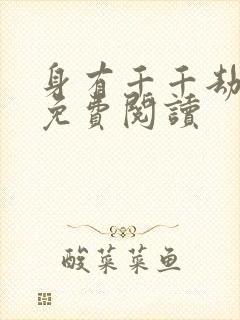 身有千千劫
免費閱讀
酸菜菜鱼